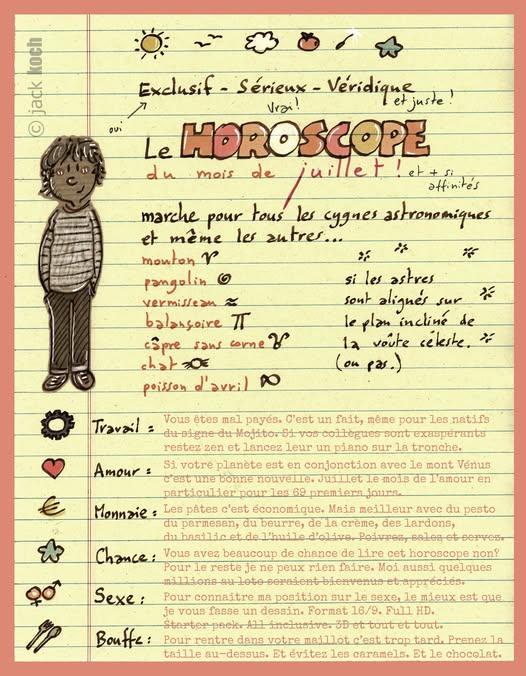 © jack koch
Exclusif - Sérieux - Véridique
oui
Vrai!
et juste!
Le HOROSCOPE
du mois de juillet!
et + si
affinités
marche pour tous les cygnes astronomiques
et même les autres...
mouton
pangolin
vermisseau
balançoire
câpre sans corne
chat
poisson d'avril
si les astres
sont alignés sur
le plan incliné de
la voûte céleste.
(ou pas.)
Travail :
Vous êtes mal payés. C'est un fait, même pour les natifs
du signe du Mojito. Si vos collègues sont exaspérants
restez zen et lancez leur un piano sur la tronche.
Amour :
Si votre planète est en conjonction avec le mont Vénus
c'est une bonne nouvelle. Juillet le mois de l'amour en
particulier pour les 69 premiers jours.
Monnaie :
Les pâtes c'est économique. Mais meilleur avec du pesto
du parmesan, du beurre, de la crème, des lardons,
du basilic et de l'huile d'olive. Poivrez, salez et servez.
Chance :
Vous avez beaucoup de chance de lire cet horoscope non?
Pour le reste je ne peux rien faire. Moi aussi quelques
millions au loto seraient bienvenus et appréciés.
Sexe :
Pour connaitre ma position sur le sexe, le mieux est que
je vous fasse un dessin. Format 16/9. Full HD.
Starter pack. All inclusive. 3D et tout et tout.
Bouffe :
Pour rentre dans votre maillot c'est trop tard. Prenez la
taille au-dessus. Et évitez les caramels. Et le chocolat.